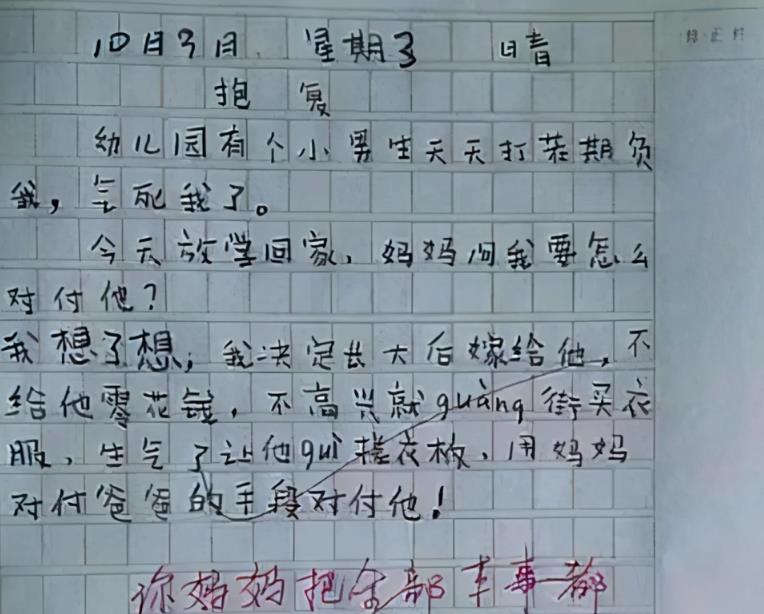 10月3日 星期3 晴
抱复
幼儿园有个小男生天天打茬期负
我，气死我了。
今天放学回家，妈妈问我要怎么
对付他？
我想了想，我决定长大后嫁给他，不
给他零花钱，不高兴就guàng街买衣
服，生气了让他guì搓衣板，用妈妈
对付爸爸的手段对付他！
你妈妈把全部本事都